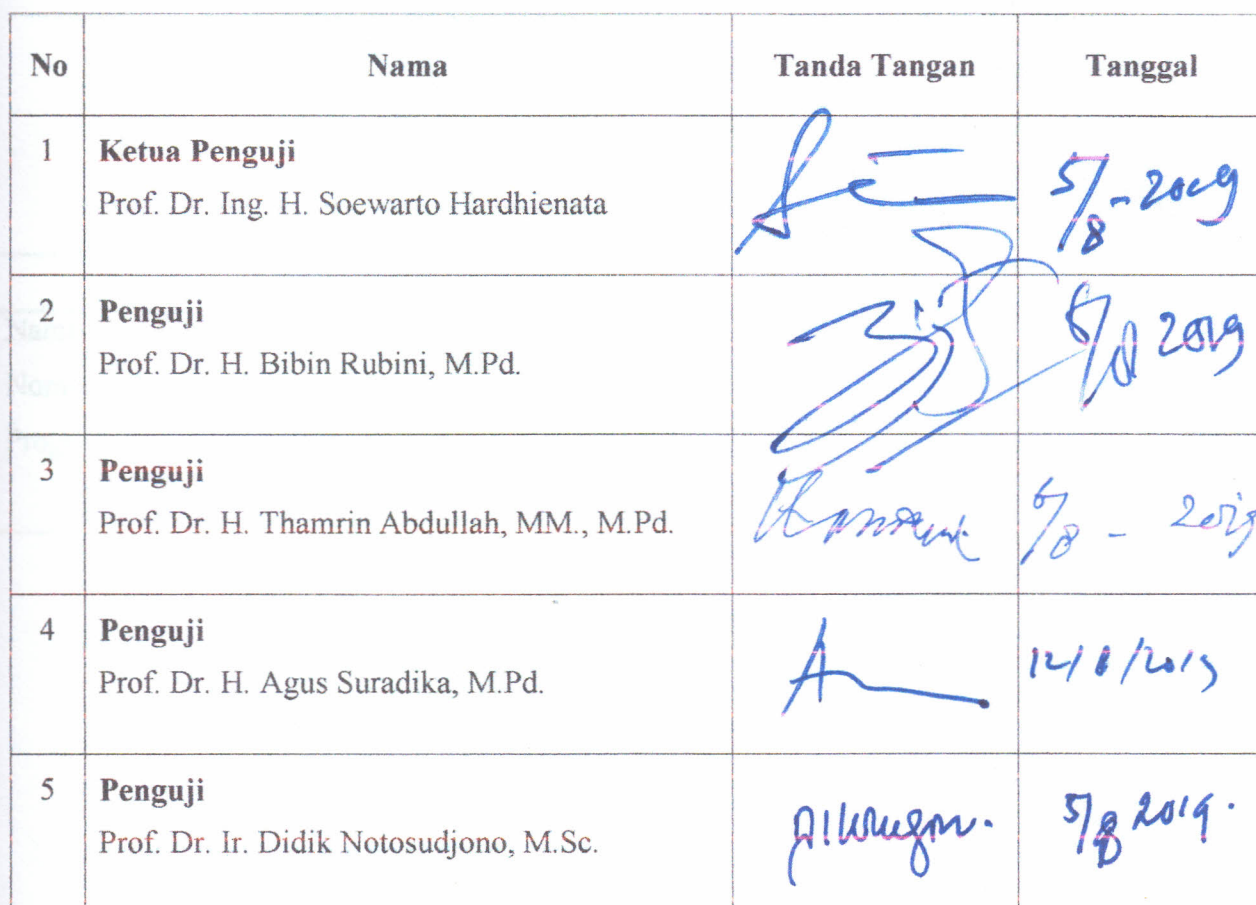 No Nama Tanda Tangan Tanggal
1 Ketua Penguji
Prof. Dr. Ing. H. Soewarto Hardhienata
5/8-2019
2 Penguji
Prof. Dr. H. Bibin Rubini, M.Pd.
2019
3 Penguji
Prof. Dr. H. Thamrin Abdullah, MM., M.Pd.
6/8 - 2019
4 Penguji
Prof. Dr. H. Agus Suradika, M.Pd.
12/8/2019
5 Penguji
Prof. Dr. Ir. Didik Notosudjono, M.Sc.
5/8 2019.